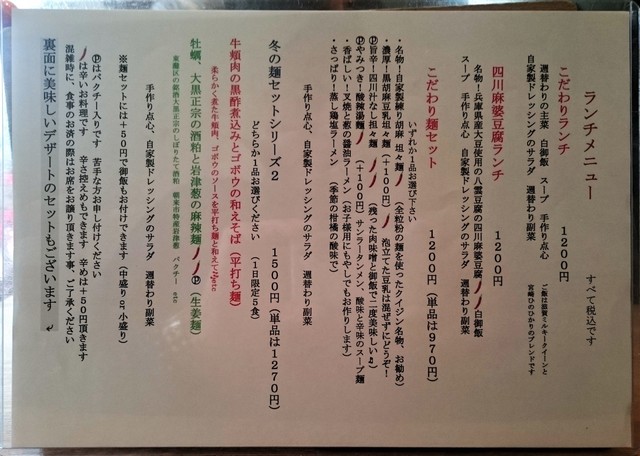 ランチメニュー
すべて税込です
こだわりランチ 1200円
週替わりの主菜 白御飯 スープ 手作り点心
自家製ドレッシングのサラダ 週替わり副菜
ご飯は滋賀ミルキークイーンと
宮崎ひのひかりのブレンドです
四川麻婆豆腐ランチ 1200円
名物！兵庫県産大豆使用の八雲豆腐の四川麻婆豆腐 白御飯
スープ 手作り点心 自家製ドレッシングのサラダ 週替わり副菜
こだわり麺セット 1200円（単品は970円）
いずれか1品お選び下さい
・名物！自家製練り胡麻 坦々麺（全粒粉の麺を使ったクイジン名物、お勧め）
・濃厚！黒胡麻豆乳坦々麺（＋100円） 泡立てた豆乳は混ぜずにどうぞ！
Ⓟ旨辛！四川汁なし担々麺（残った肉味噌と御飯で二度美味しい♫）
Ⓟやみつき！酸辣湯麺（＋100円）サンラータンメン、酸味と辛味のスープ麺
・香ばしい！叉焼と葱の醤油ラーメン（お子様用にもやしでもお作りします）
・さっぱり！蒸し鶏塩ラーメン（季節の柑橘の酸味で）
手作り点心、自家製ドレッシングのサラダ 週替わり副菜
冬の麺セットシリーズ2 1500円（単品は1270円）
どちらか1品お選びください （1日限定5食）
牛頬肉の黒酢煮込みとゴボウの和えそば（平打ち麺）
柔らかく煮た牛頬肉、ゴボウのソースを平打ち麺と和えて♪etc
牡蠣、大黒正宗の酒粕と岩津葱の麻辣麺Ⓟ（生姜麺）
東灘区の銘酒大黒正宗のしぼりたて酒粕 朝来市特産岩津葱 パクチー etc
手作り点心、自家製ドレッシングのサラダ 週替わり副菜
※麺セットには＋50円で御飯もお付けできます（中盛りor小盛り）
Ⓟはパクチー入りです 苦手な方お申し付けください
は辛いお料理です 辛さ控えめもできます 辛めは＋50円頂きます
混雑時に、食事のお済の際はお席をお譲り頂きます事、ご了承ください
裏面に美味しいデザートのセットもございます